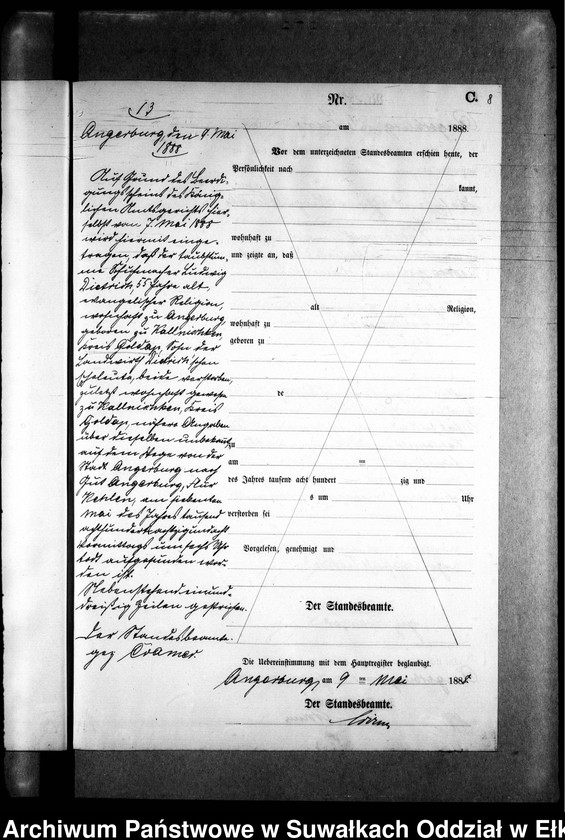 Nr.
C.
8
13
Angerburg, den 9. Mai
1888
Auf Grund des Beerdi-
gungsscheins des König-
lichen Amtsgerichts hier-
selbst vom 7. Mai 1888
wird hiermit einge-
tragen, daß der taubstum-
me Schuhmacher Ludwig
Dietrich, 55 Jahre alt,
evangelischer Religion,
wohnhaft zu Angerburg,
geboren zu Kallnischken,
Kreis Goldap, Sohn der
Landwirth Dietrich'schen
Eheleute, beide verstorben,
zuletzt wohnhaft gewesen
zu Kallnischken, Kreis
Goldap, nähere Angaben
über dieselben unbekannt,
auf dem Wege von der
Stadt Angerburg nach
Gut Angerburg, Flur
Kehlen, am siebenten
Mai des Jahres tausend
achthundertachtzigundacht
Vormittags um sechs Uhr
todt aufgefunden wor-
den ist.
Nebenstehend einund-
dreißig Zeilen gestrichen.
Der Standesbeamte.
gez Cramer.
am 1888.
Vor dem unterzeichneten Standesbeamten erschien heute, der
Persönlichkeit nach
kannt,
wohnhaft zu
und zeigte an, daß
alt Religion,
wohnhaft zu
geboren zu
de
zu
am ten
des Jahres tausend acht hundert zig und
s um Uhr
verstorben sei
Vorgelesen, genehmigt und
Der Standesbeamte.
Die Uebereinstimmung mit dem Hauptregister beglaubigt.
Angerburg, am 9 ten Mai 1888.
Der Standesbeamte.
Archiwum Państwowe w Suwałkach Oddział w Ełk